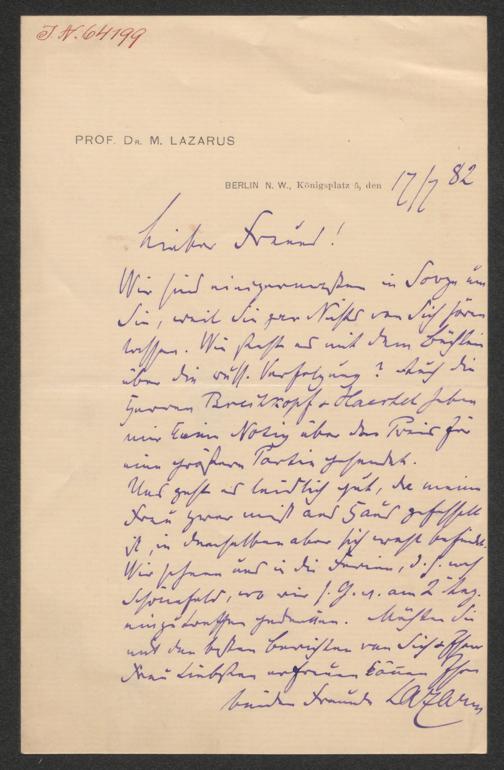 J. N. 64199
PROF. DR. M. LAZARUS
BERLIN N. W., Königsplatz 5, den 17/7 82
Lieber Freund!
Wir sind einigermaßen in Sorge um
Sie, weil Sie gar Nichts von Sich hören
lassen. Wie steht es mit dem Büchlein
über die russ. Verfolgung? Auch die
Herren Breitkopf & Haertel haben
mir keine Notiz über den Preis für
eine größere Partie gesendet.
Uns geht es leidlich gut, da meine
Frau zwar meist ans Haus gefesselt
ist, in demselben aber sich wohl befindet.
Wir sehnen uns in die Ferien, d. h. nach
Schönefeld, wo wir s. G. w. am 2 Aug.
einzutreffen gedenken. Möchten Sie
mit den besten Berichten von Sich & Ihrer
Frau Liebsten erfreuen können Ihre
beiden Freunde Lazarus